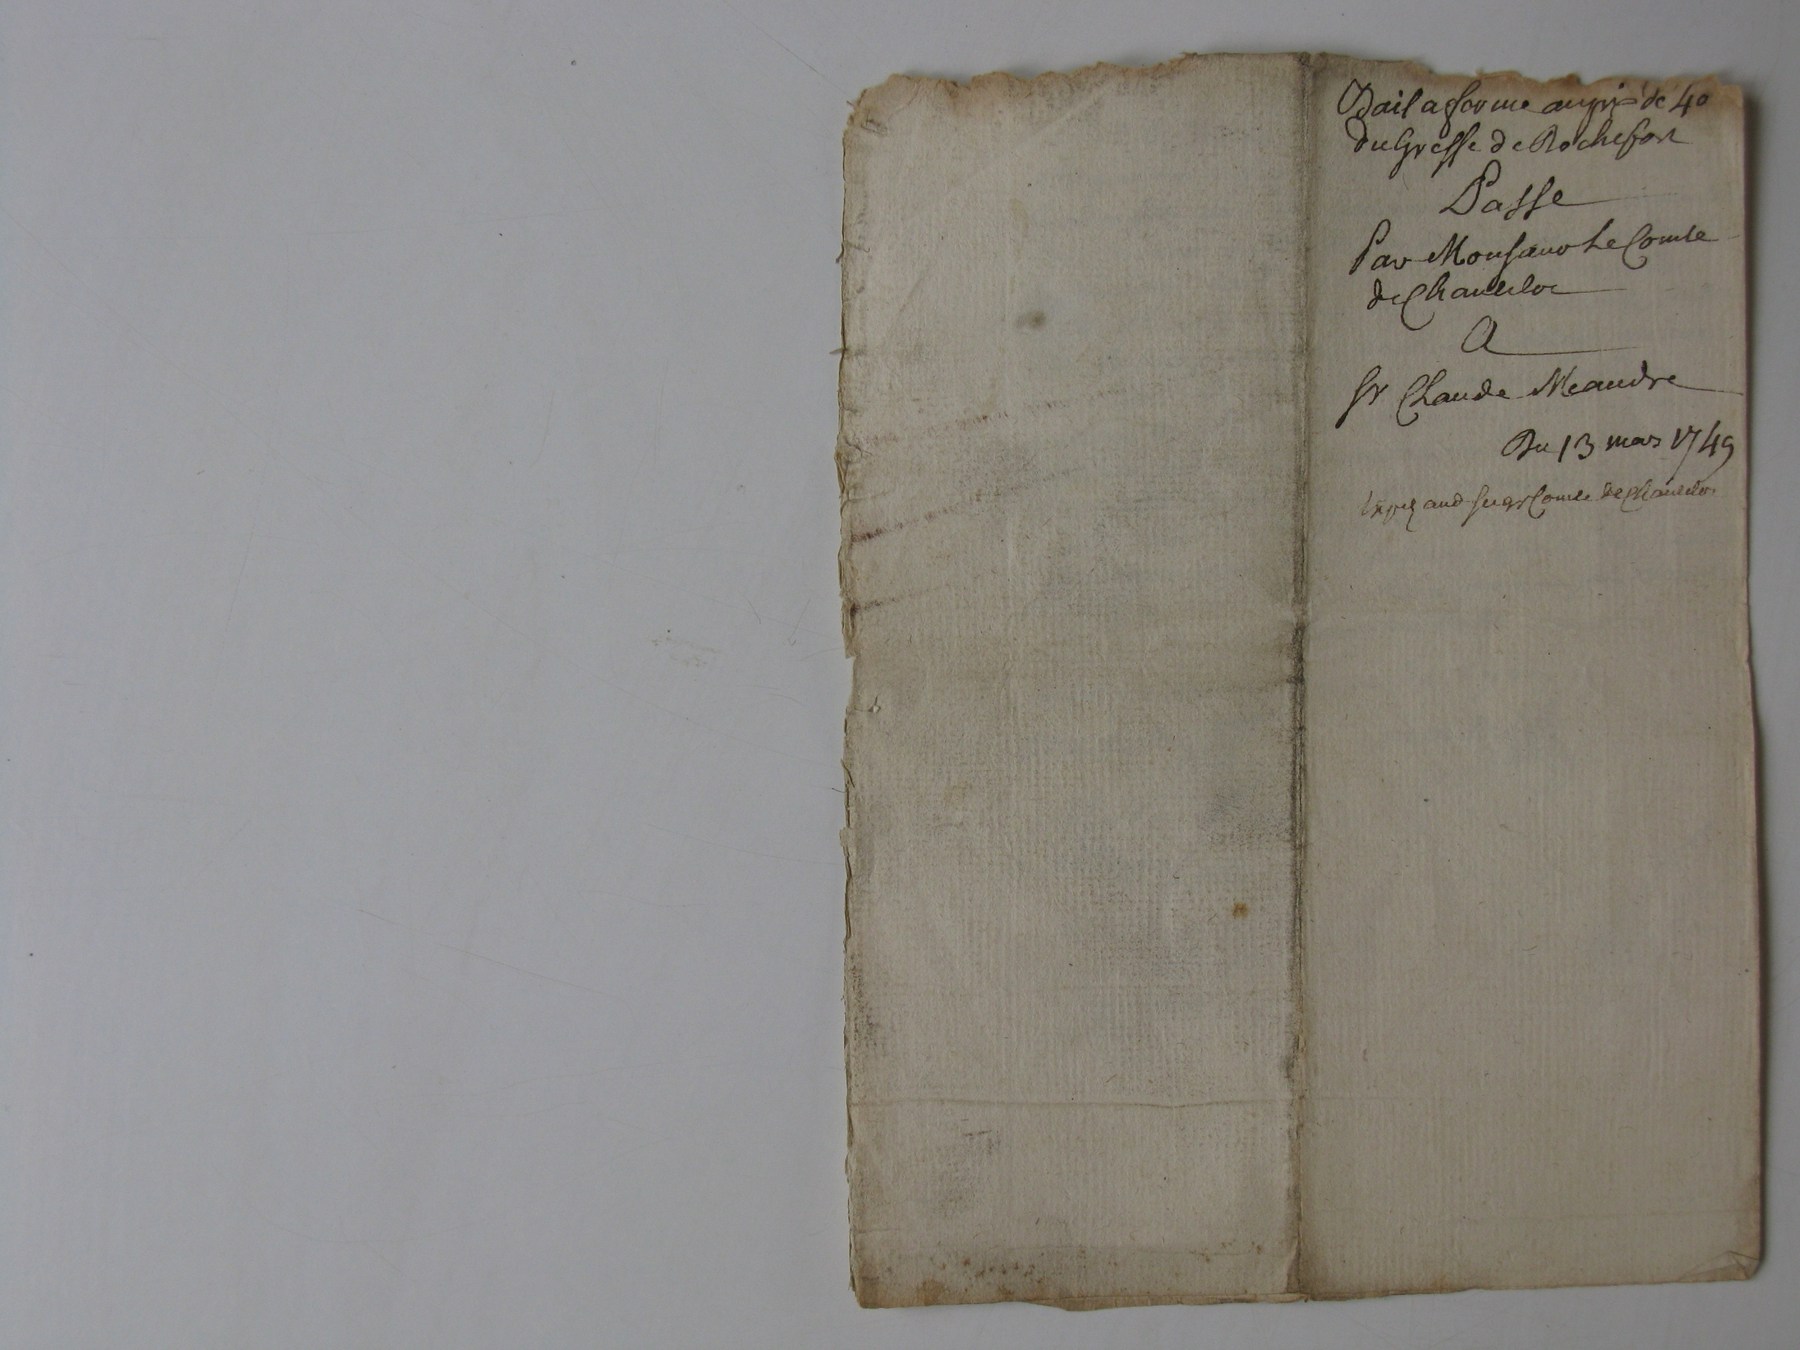 Bail a ferme au prix de 40
du Greffe de Rochefort
Passe
Par Monsieur Le Comte
de Chanteloe
A
Sr Claude Meandre
Du 13 mars 1749
Comte de